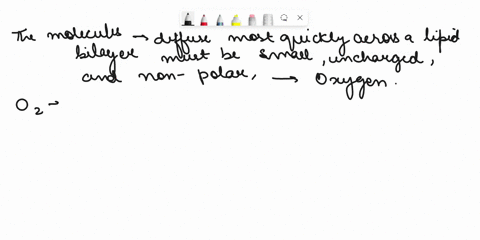 The molecules → diffuse most quickly across a lipid
bilayer must be small, uncharged,
and non-polar, → Oxygen.
O₂ →